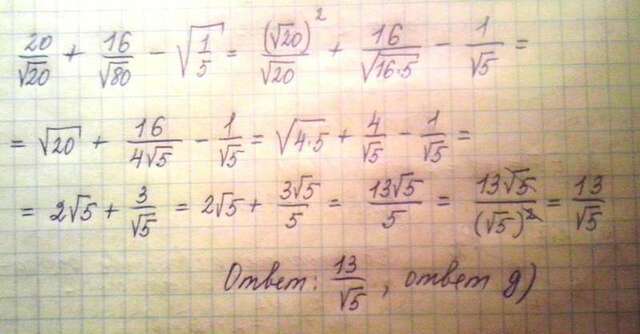 20/√20 + 16/√80 − √(1/5) = (√20)²/√20 + 16/√(16·5) − 1/√5 =
= √20 + 16/(4√5) − 1/√5 = √(4·5) + 4/√5 − 1/√5 =
= 2√5 + 3/√5 = 2√5 + 3√5/5 = 13√5/5 = 13√5/(√5)² = 13/√5
Ответ: 13/√5, ответ д)